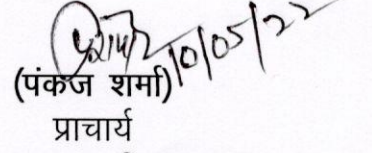 10/05/22
(पंकज शर्मा)
प्राचार्य